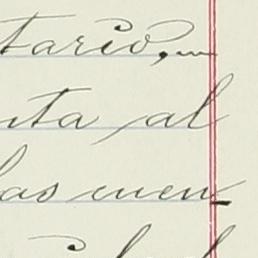 tario,
nta al
las cuen-